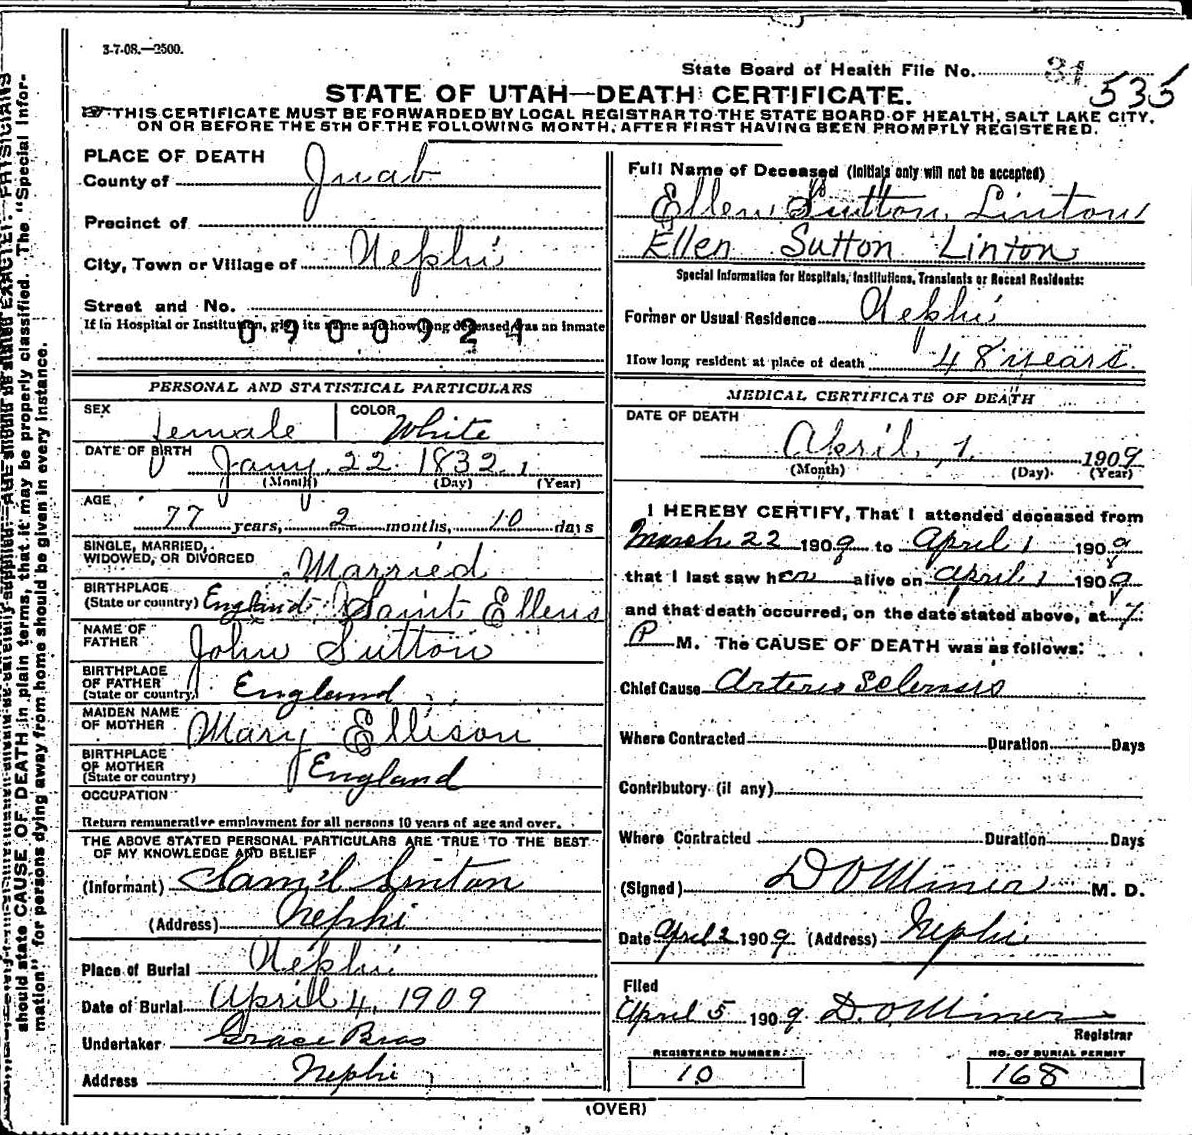 3-7-08.—2500.
State Board of Health File No. 31 535
STATE OF UTAH—DEATH CERTIFICATE.
THIS CERTIFICATE MUST BE FORWARDED BY LOCAL REGISTRAR TO THE STATE BOARD OF HEALTH, SALT LAKE CITY,
ON OR BEFORE THE 5TH OF THE FOLLOWING MONTH, AFTER FIRST HAVING BEEN PROMPTLY REGISTERED.
PLACE OF DEATH
County of Juab
Precinct of
City, Town or Village of Nephi
Street and No.
If in Hospital or Institution, give its name and how long deceased was an inmate
0900924
PERSONAL AND STATISTICAL PARTICULARS
SEX female COLOR White
DATE OF BIRTH Jany 22 1832
(Month) (Day) (Year)
AGE 77 years, 2 months, 10 days
SINGLE, MARRIED,
WIDOWED, OR DIVORCED Married
BIRTHPLACE
(State or country) England Saint Ellens
NAME OF
FATHER John Sutton
BIRTHPLACE
OF FATHER
(State or country) England
MAIDEN NAME
OF MOTHER Mary Ellison
BIRTHPLACE
OF MOTHER
(State or country) England
OCCUPATION
Return remunerative employment for all persons 10 years of age and over.
THE ABOVE STATED PERSONAL PARTICULARS ARE TRUE TO THE BEST
OF MY KNOWLEDGE AND BELIEF
(Informant) Sam'l Linton
(Address) Nephi
Place of Burial Nephi
Date of Burial April 4, 1909
Undertaker Grace Bros
Address Nephi
Full Name of Deceased (Initials only will not be accepted)
Ellen Sutton Linton
Ellen Sutton Linton
Special Information for Hospitals, Institutions, Transients or Recent Residents:
Former or Usual Residence Nephi
How long resident at place of death 48 years
MEDICAL CERTIFICATE OF DEATH
DATE OF DEATH
April 1 1909
(Month) (Day) (Year)
I HEREBY CERTIFY, That I attended deceased from
March 22 1909 to April 1 1909
that I last saw her alive on April 1 1909
and that death occurred, on the date stated above, at 7
P M. The CAUSE OF DEATH was as follows:
Chief Cause Arterio Sclerosis
Where Contracted Duration Days
Contributory (if any)
Where Contracted Duration Days
(Signed) D O Miner M. D.
Date April 2 1909 (Address) Nephi
Filed
April 5 1909 D. O. Miner
Registrar
REGISTERED NUMBER:
10
NO. OF BURIAL PERMIT
168
(OVER)
should state CAUSE OF DEATH in plain terms, that it may be properly classified. The "Special Infor-
mation" for persons dying away from home should be given in every instance.